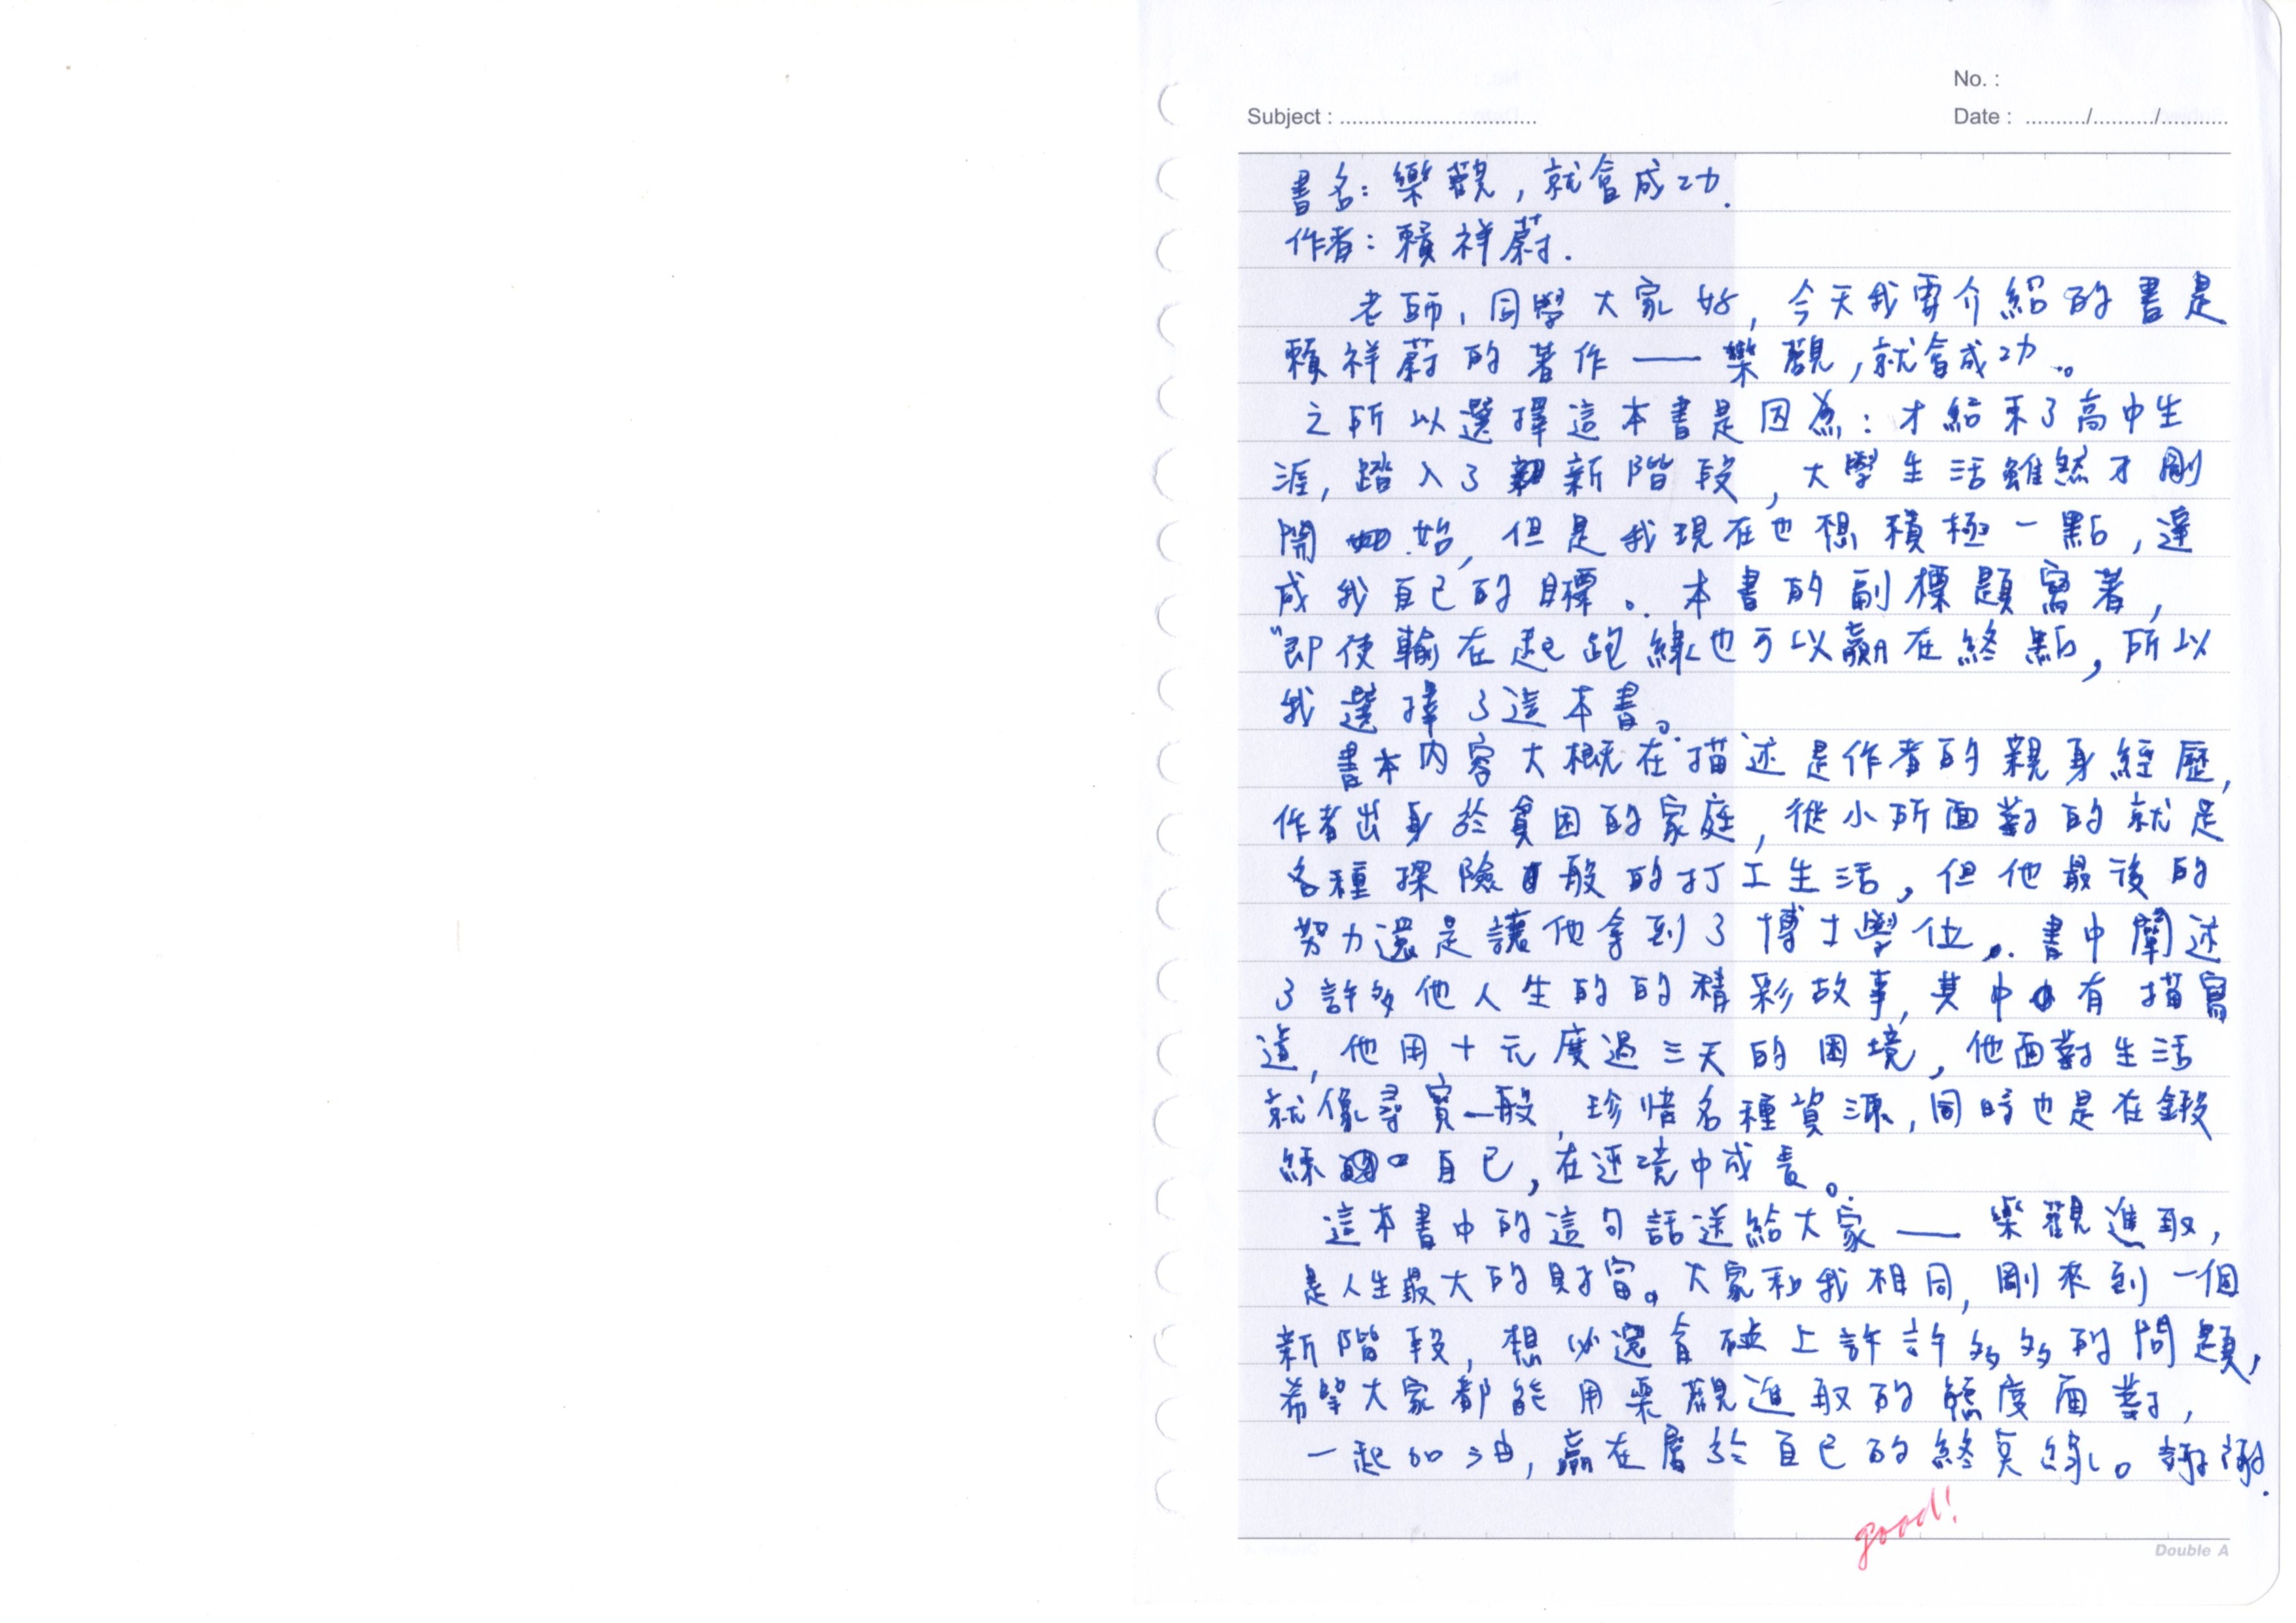 No. :
Subject : ................................
Date : ........../........../...........
書名：樂觀，就會成功.
作者：賴祥蔚.
老師，同學大家好，今天我要介紹的書是
賴祥蔚的著作——樂觀，就會成功。
之所以選擇這本書是因為：才結束了高中生
涯，踏入了新階段，大學生活雖然才剛
開始，但是我現在也想積極一點，達
成我自己的目標。本書的副標題寫著，
"即使輸在起跑線也可以贏在終點，所以
我選擇了這本書。
書本內容大概在描述是作者的親身經歷，
作者出身於貧困的家庭，從小所面對的就是
各種探險般的打工生活，但他最後的
努力還是讓他拿到了博士學位。書中闡述
了許多他人生的的精彩故事，其中有描寫
道，他用十元度過三天的困境，他面對生活
就像尋寶一般，珍惜各種資源，同時也是在鍛
練自己，在逆境中成長。
這本書中的這句話送給大家——樂觀進取，
是人生最大的財富。大家和我相同，剛來到一個
新階段，想必還會碰上許許多多的問題，
希望大家都能用樂觀進取的態度面對，
一起加油，贏在屬於自己的終點線。謝謝.
good!
Double A